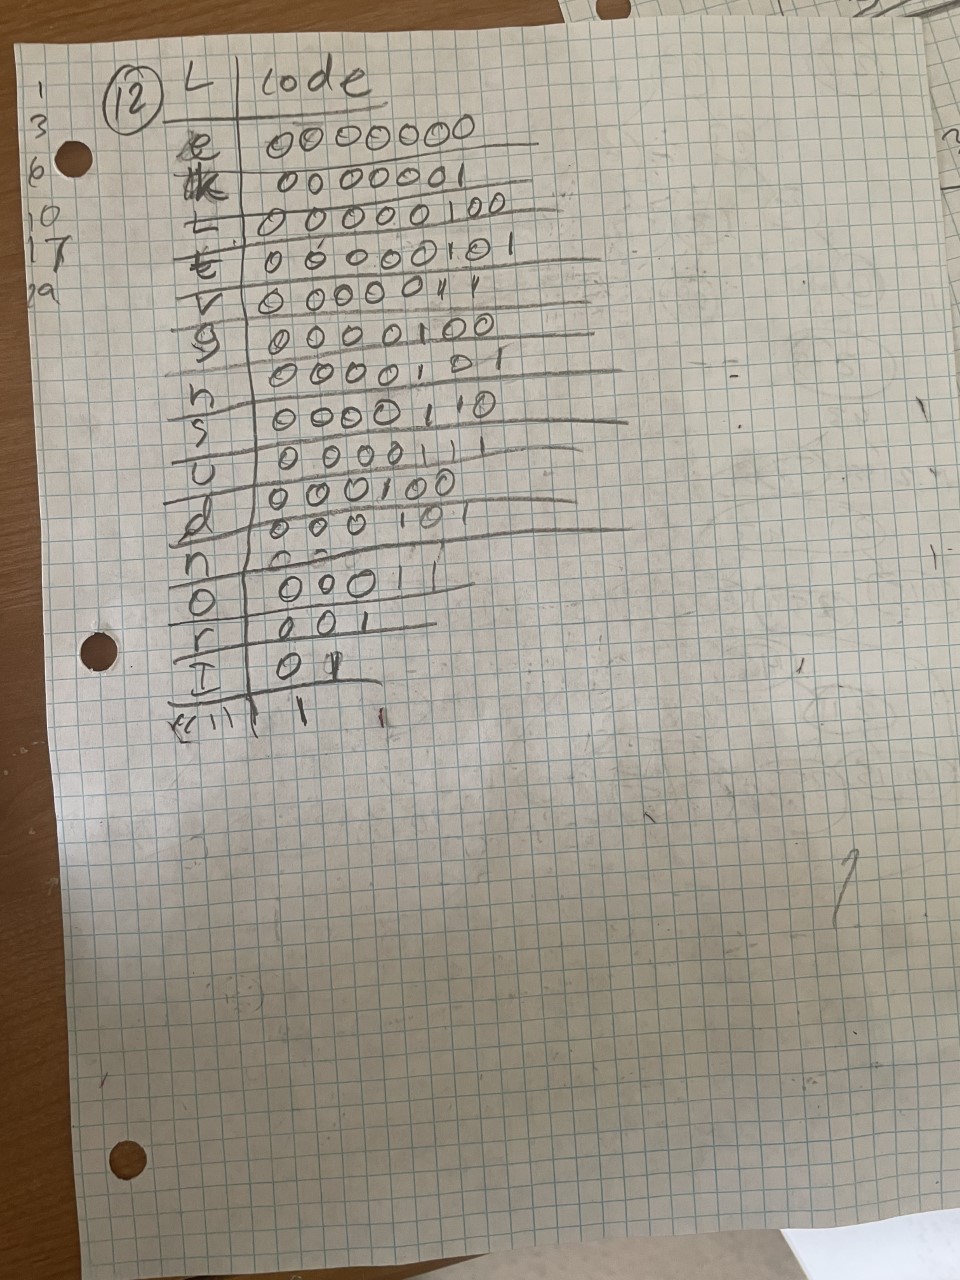 1
3
6
10
17
29
12 L code
e 0000000
k 0000001
L 00000100
t 00000101
v 0000011
g 0000100
h 0000101
s 0000110
u 0000111
d 000100
n 000101
o 00011
r 001
I 01
“ ” 1